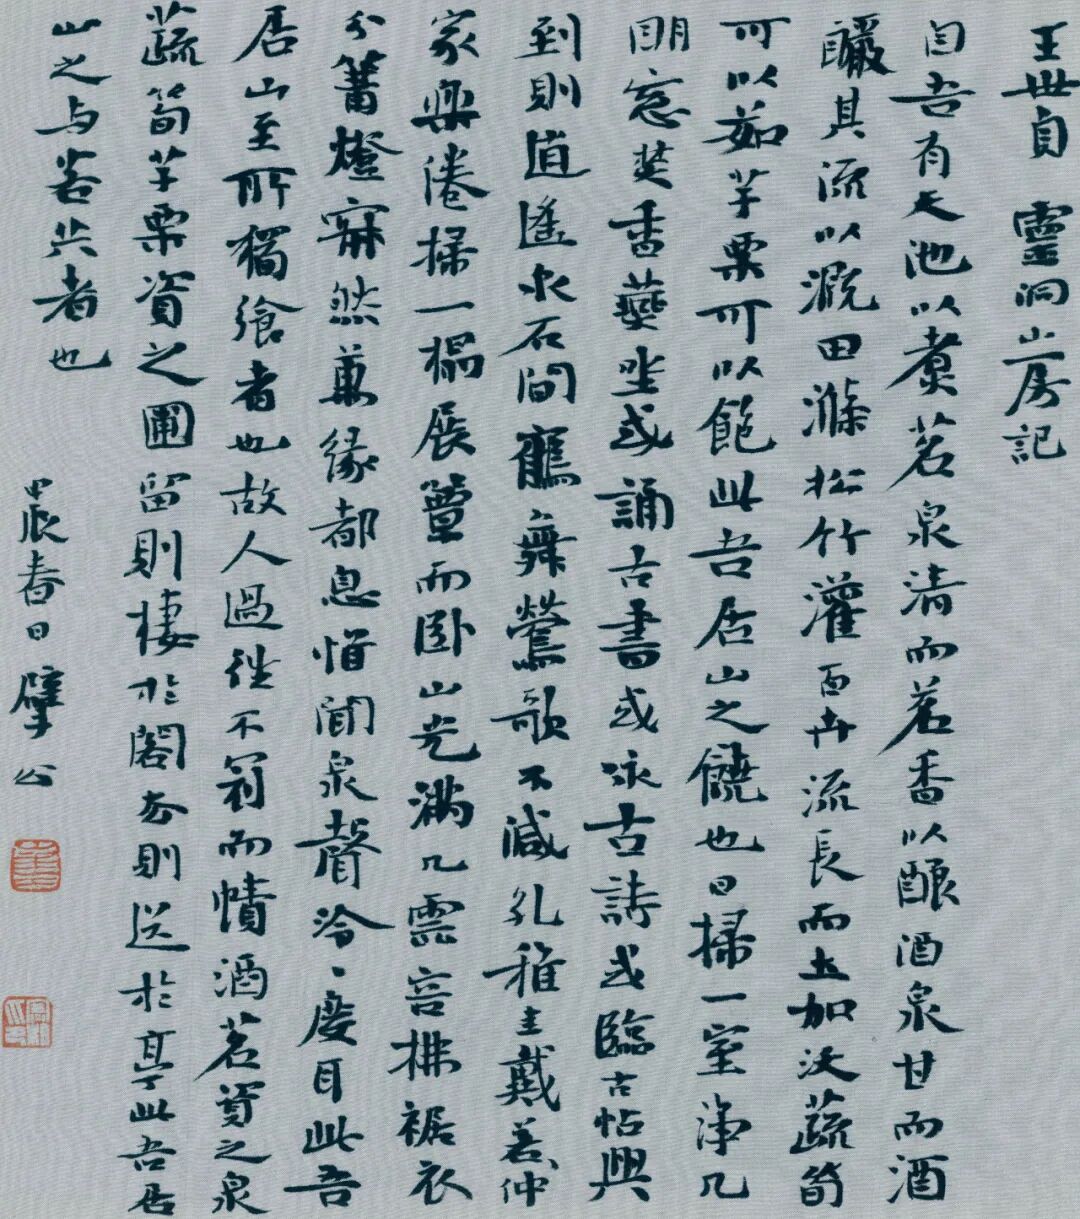 王世貞 靈洞山房記
曰吾有天池以煮茗泉清而茗香以釀酒泉甘而酒
釅其流以溉田滌松竹灌百卉流長而土加沃蔬筍
可以茹芋栗可以飽此吾居山之饒也日掃一室淨几
明窓焚香燕坐或誦古書或咏古詩或臨古帖興
到則逍遙水石間鶴舞鶯歌不減孔稚圭戴善仲
家樂倦掃一榻展簟而卧山光滿几雲容拂裾衣
分篝燈寐然萬緣都息惟聞泉聲泠々度耳此吾
居山至所獨飡者也故人過從不冠而幘酒茗資之泉
蔬筍芋栗資之圃留則棲於閣去則送於亭此吾居
山之与客共者也
甲辰春日 擘公